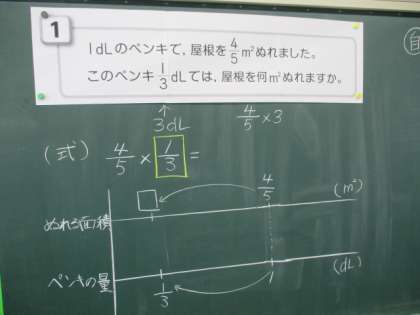 1
1dLのペンキで、屋根を4/5m²ぬれました。
このペンキ1/3dLでは、屋根を何m²ぬれますか。
↑
3dL
4/5×3
(式) 4/5×1/3=
□ 4/5 (m²)
ぬれる面積
ペンキの量 (dL)
1/3 1
自